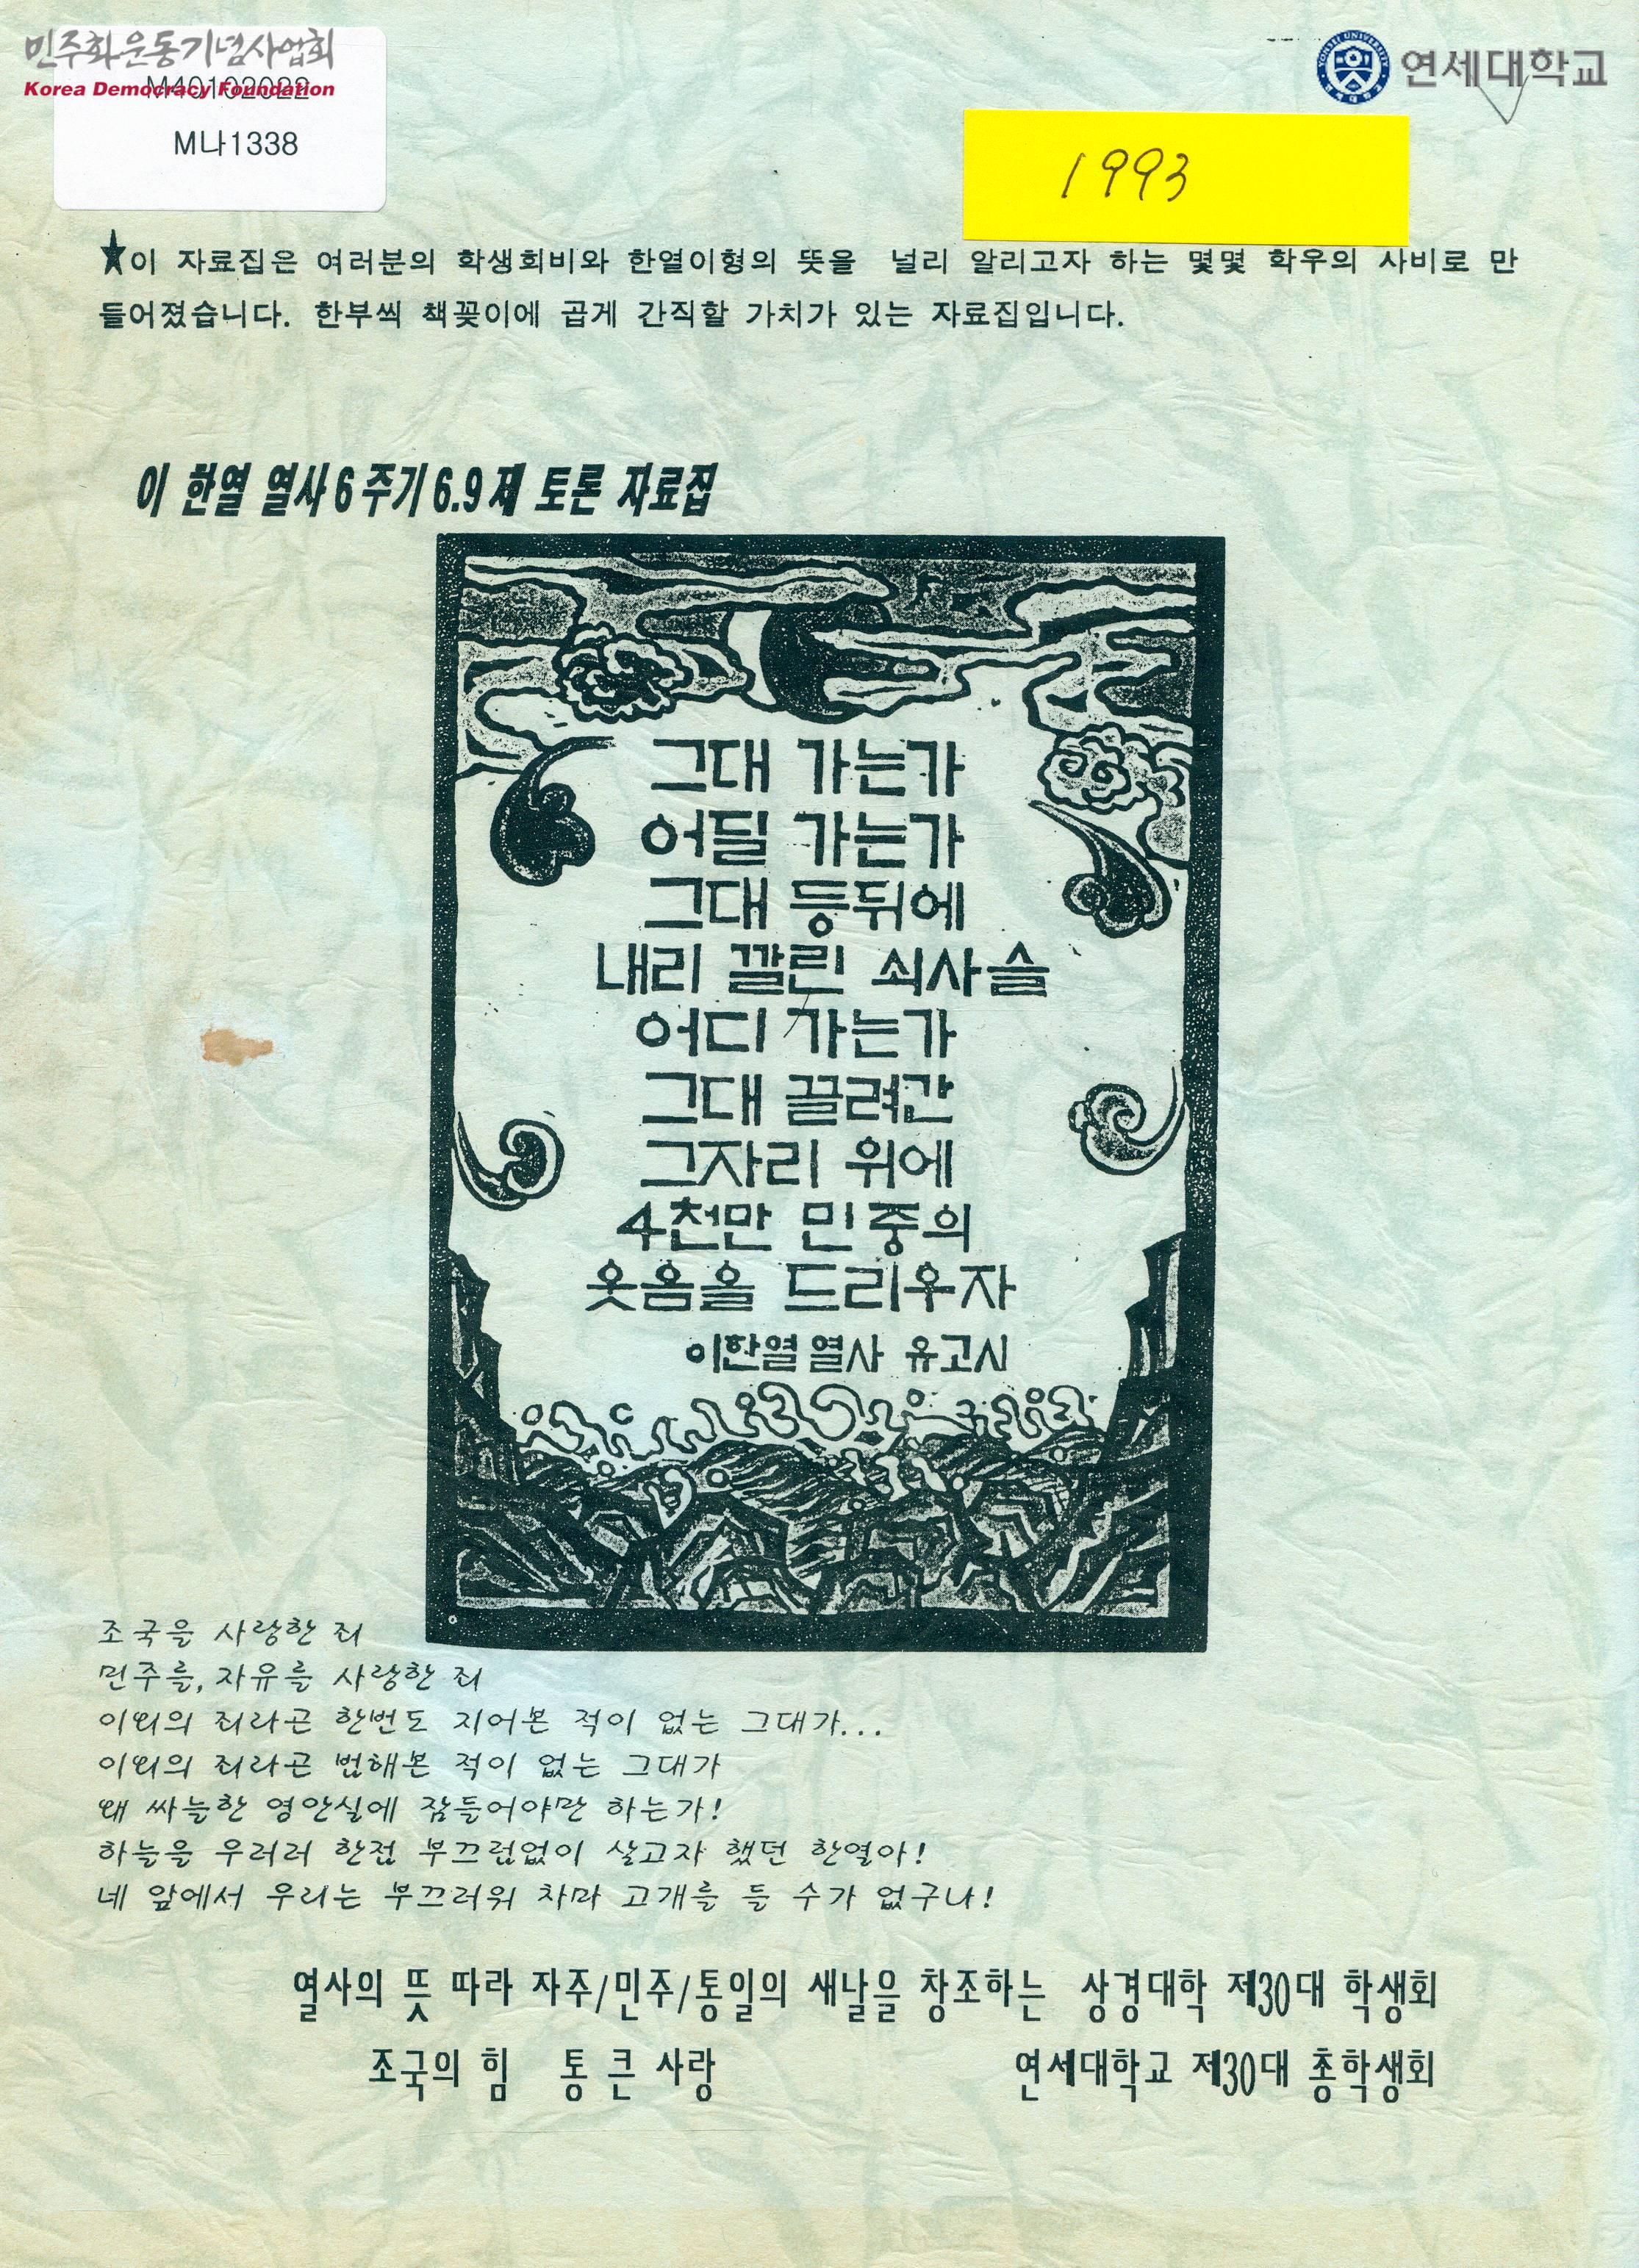 민주화운동기념사업회
Korea Democracy Foundation
M40102022
M나1338
연세대학교
1993
★이 자료집은 여러분의 학생회비와 한열이형의 뜻을 널리 알리고자 하는 몇몇 학우의 사비로 만
들어졌습니다. 한부씩 책꽂이에 곱게 간직할 가치가 있는 자료집입니다.
이 한열 열사 6 주기 6.9 제 토론 자료집
그대 가는가
어딜 가는가
그대 등뒤에
내리 깔린 쇠사슬
어디 가는가
그대 끌려간
그자리 위에
4천만 민중의
웃음을 드리우자
이한열 열사 유고시
조국을 사랑한 죄
민주를, 자유를 사랑한 죄
이외의 죄라곤 한번도 지어본 적이 없는 그대가...
이외의 죄라곤 범해본 적이 없는 그대가
왜 싸늘한 영안실에 잠들어야만 하는가!
하늘을 우러러 한점 부끄럼없이 살고자 했던 한열아!
네 앞에서 우리는 부끄러워 차마 고개를 들 수가 없구나!
열사의 뜻 따라 자주/민주/통일의 새날을 창조하는 상경대학 제30대 학생회
조국의 힘 통 큰 사랑 연세대학교 제30대 총학생회